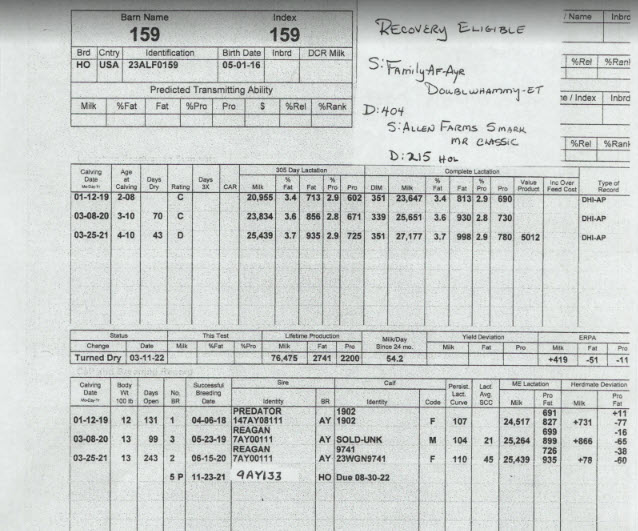 Barn Name Index
159 159
Brd Cntry Identification Birth Date Inbrd DCR Milk
HO USA 23ALF0159 05-01-16
Predicted Transmitting Ability
Milk %Fat Fat %Pro Pro $ %Rel %Rank
RECOVERY ELIGIBLE
S: Family-AF-Ayr
DOUBLWHAMMY-ET
D: 404
S: ALLEN FARMS SMARK
MR CLASSIC
D: 215 HOL
/ Name Inbrd
%Rel %Rank
ne / Index Inbrd
%Rel %Rank
305 Day Lactation Complete Lactation
Calving Date Age at Calving Days Dry Rating Days 3X CAR Milk % Fat Fat % Pro Pro DIM Milk % Fat Fat % Pro Pro Value Product Inc Over Feed Cost Type of Record
01-12-19 2-08 C 20,955 3.4 713 2.9 602 351 23,647 3.4 813 2.9 690 DHI-AP
03-08-20 3-10 70 C 23,834 3.6 856 2.8 671 339 25,651 3.6 930 2.8 730 DHI-AP
03-25-21 4-10 43 D 25,439 3.7 935 2.9 725 351 27,177 3.7 998 2.9 780 5012 DHI-AP
Status This Test Lifetime Production Milk/Day Since 24 mo. Yield Deviation ERPA
Change Date Milk %Fat %Pro Milk Fat Pro Milk Fat Pro Milk Fat Pro
Turned Dry 03-11-22 76,475 2741 2200 54.2 +419 -51 -11
Calving Date Body Wt 100 lb Days Open No. BR Successful Breeding Date Sire Calf Persist. Lact. Curve Lact Avg. SCC ME Lactation Herdmate Deviation
Identity BR Identity Code Milk Pro Fat Milk Pro Fat
PREDATOR 1902 691 +11
01-12-19 12 131 1 04-06-18 147AY08111 AY 1902 F 107 24,517 827 +731 -77
REAGAN 699 -16
03-08-20 13 99 3 05-23-19 7AY00111 AY SOLD-UNK M 104 21 25,264 899 +866 -65
REAGAN 9741 726 -38
03-25-21 13 243 2 06-15-20 7AY00111 AY 23WGN9741 F 110 45 25,439 935 +78 -60
5 P 11-23-21 9AY133 HO Due 08-30-22